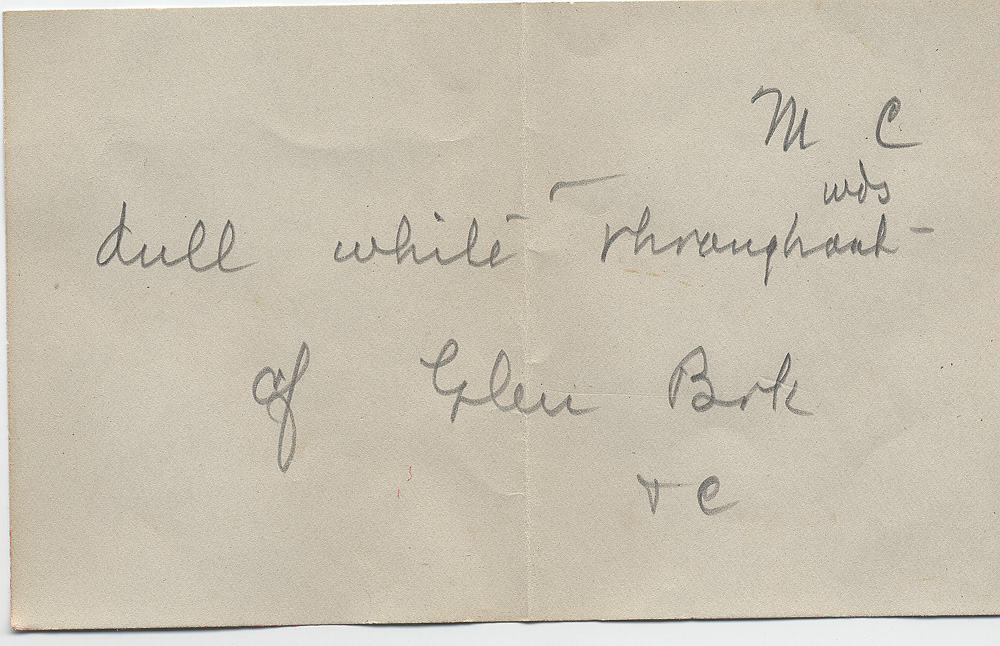 M C
wds
dull white throughout -
of Glen Brk
+ C